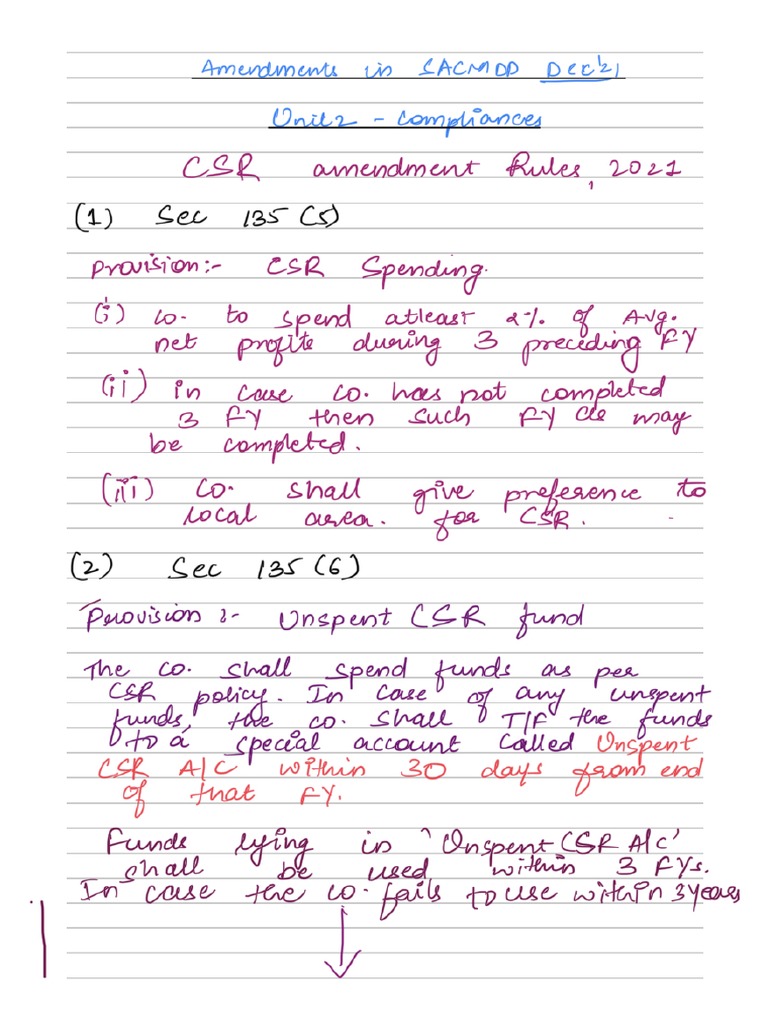 Amendments in SACMDD Dec'21
Unit 2 - Compliances
CSR amendment Rules, 2021
(1) Sec 135 (5)
Provision:- CSR Spending.
(i) co. to spend atleast 2% of Avg.
net profits during 3 preceding FY
(ii) in case co. has not completed
3 FY then such FY as may
be completed.
(iii) Co. shall give preference to
local area. for CSR.
(2) Sec 135 (6)
Provision :- Unspent CSR fund
The co. shall spend funds as per
CSR policy. In case of any unspent
funds, the co. shall T/F the funds
to a special account called Unspent
CSR A/C within 30 days from end
of that FY.
Funds lying in 'Unspent CSR A/C'
shall be used within 3 FYs.
In case the co. fails to use within 3 years